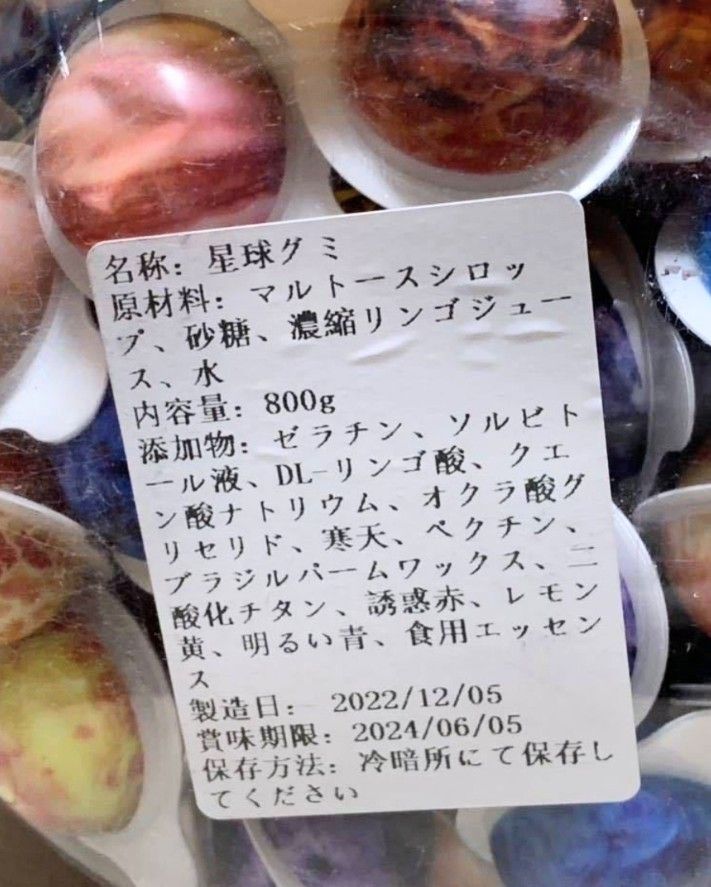 名称: 星球グミ
原材料: マルトースシロッ
プ、砂糖、濃縮リンゴジュー
ス、水
内容量: 800g
添加物: ゼラチン、ソルビト
ール液、DL-リンゴ酸、クエ
ン酸ナトリウム、オクラ酸グ
リセリド、寒天、ペクチン、
ブラジルパームワックス、二
酸化チタン、誘惑赤、レモン
黄、明るい青、食用エッセン
ス
製造日: 2022/12/05
賞味期限: 2024/06/05
保存方法: 冷暗所にて保存し
てください